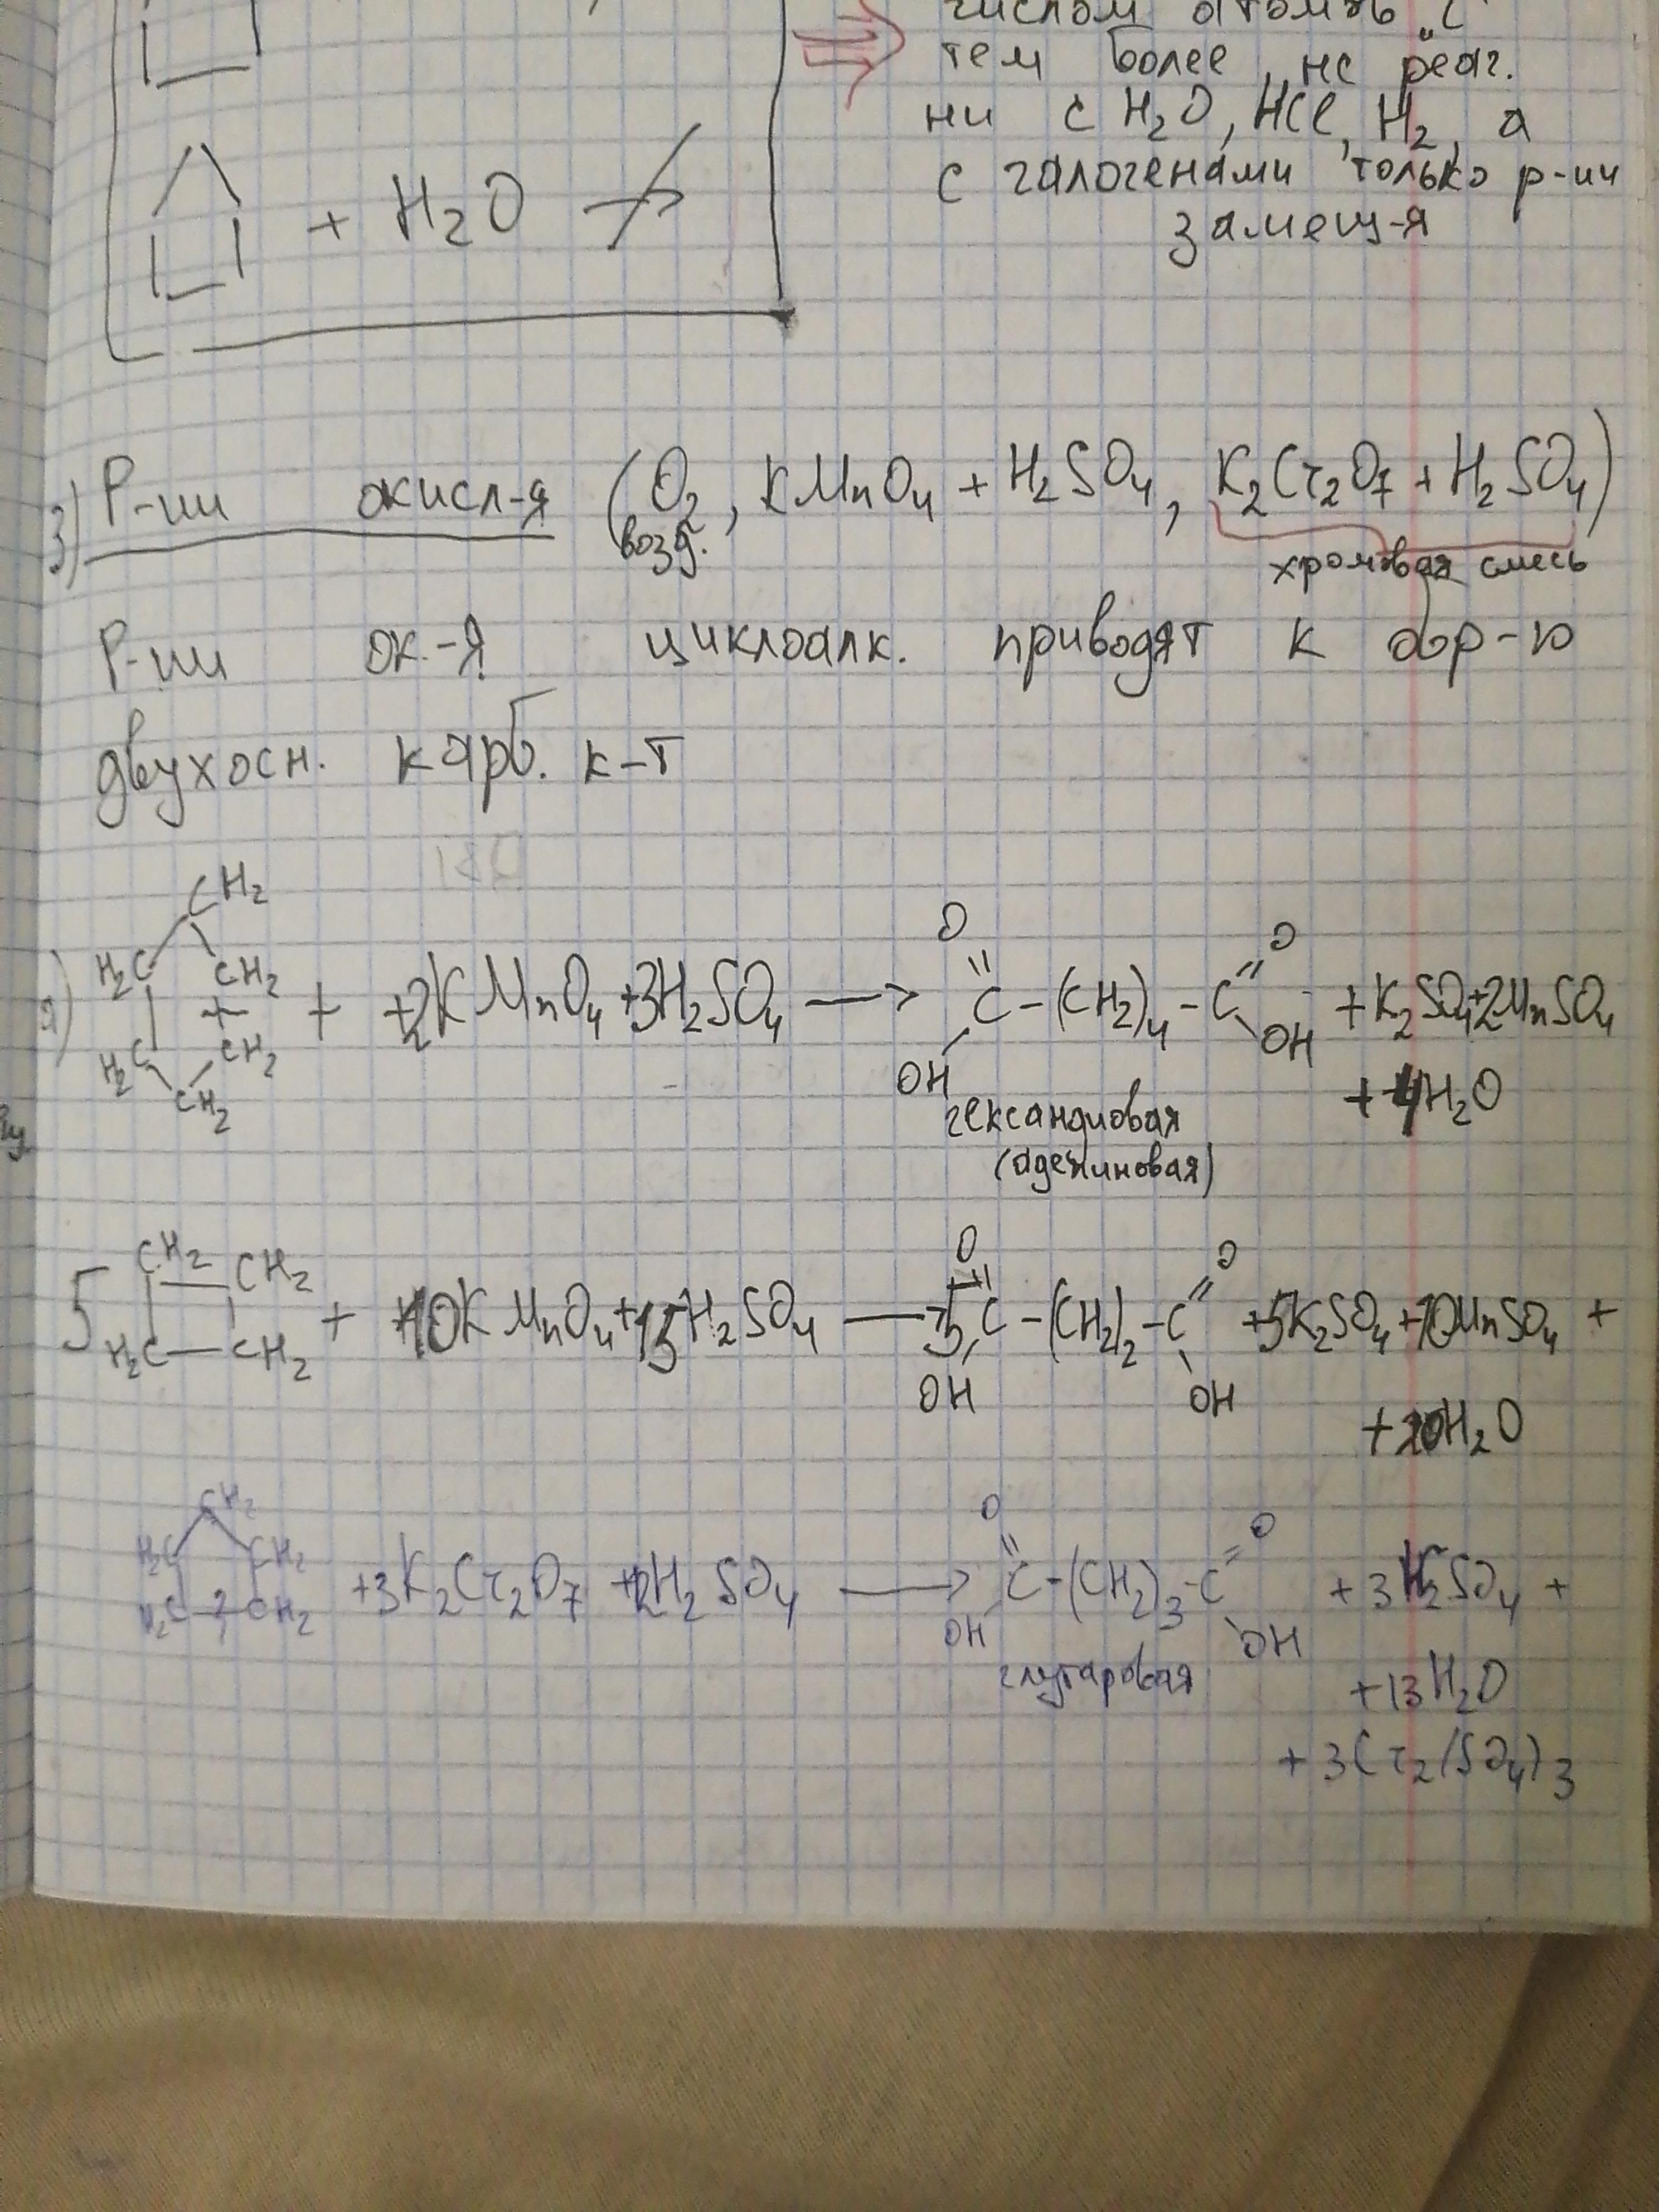 числом атомов "С"
тем более, не реаг.
ни с H₂O, HCl, H₂, а
с галогенами только р-ии
замещ-я
+ H₂O
3) Р-ии окисл-я (O₂ возд., KMnO₄ + H₂SO₄, K₂Cr₂O₇ + H₂SO₄)
хромовая смесь
Р-ии ок-я циклоалк. приводят к обр-ю
двухосн. карб. к-т
CH₂
H₂C CH₂
+ +2KMnO₄ +3H₂SO₄ → C-(CH₂)₄-C +K₂SO₄+2MnSO₄
O O OH OH
H₂C CH₂
CH₂
+4H₂O
гександиовая
(адепиновая)
5 CH₂ CH₂
H₂C — CH₂ + 10KMnO₄+15H₂SO₄ → 5C-(CH₂)₂-C +5K₂SO₄+10MnSO₄ +
O O OH OH
+20H₂O
CH₂
H₂C CH₂
H₂C CH₂ +3K₂Cr₂O₇ +12H₂SO₄ → C-(CH₂)₃-C + 3K₂SO₄ +
O O OH OH
глутаровая
+13H₂O
+ 3Cr₂(SO₄)₃